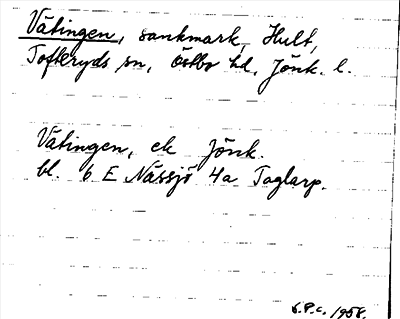 Vätingen, sankmark, Hult,
Tofteryds sn, Östbo hd, Jönk. l.
Vätingen, ek Jönk.
bl. 6 E Nässjö 4a Taglarp.
G.P.c. 1958.